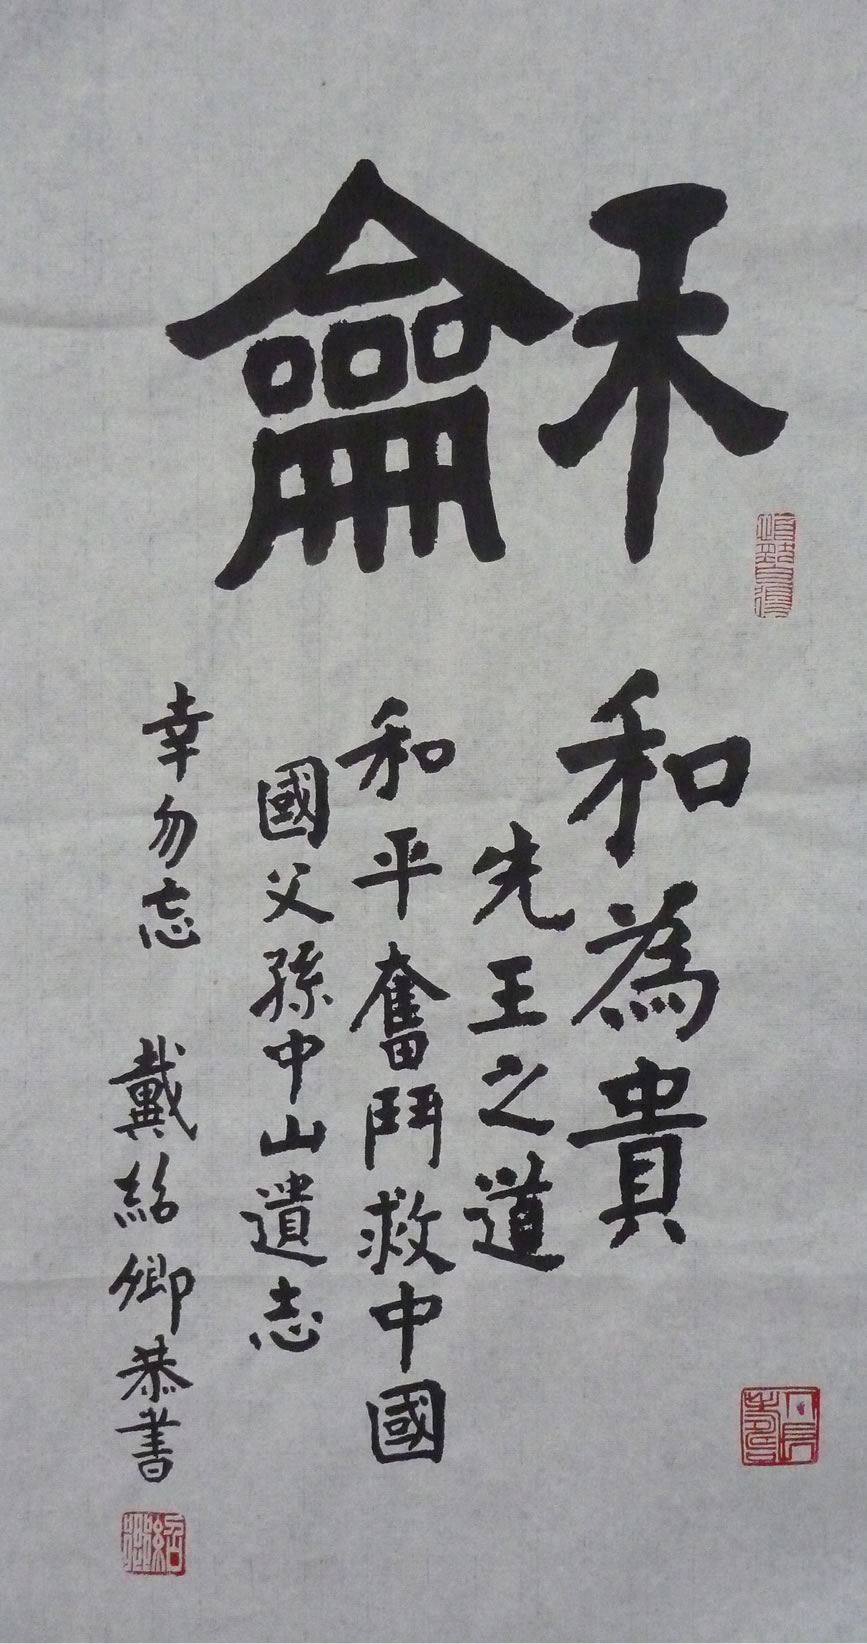 龢
和為貴
先王之道
和平奮鬥救中國
國父孫中山遺志
幸勿忘 戴紹卿恭書
紹卿